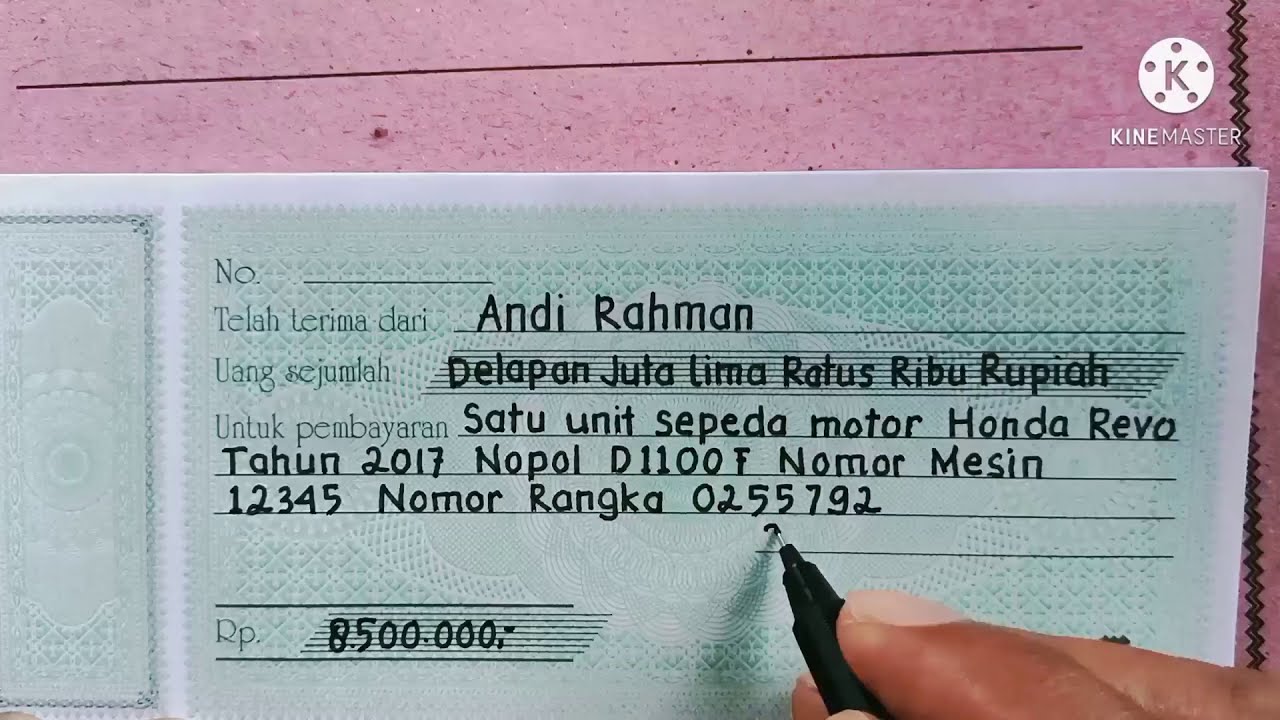 K
KINEMASTER
No.
Telah terima dari Andi Rahman
Uang sejumlah Delapan Juta Lima Ratus Ribu Rupiah
Untuk pembayaran Satu unit sepeda motor Honda Revo
Tahun 2017 Nopol D1100F Nomor Mesin
12345 Nomor Rangka 0255792
Rp. 8.500.000,-